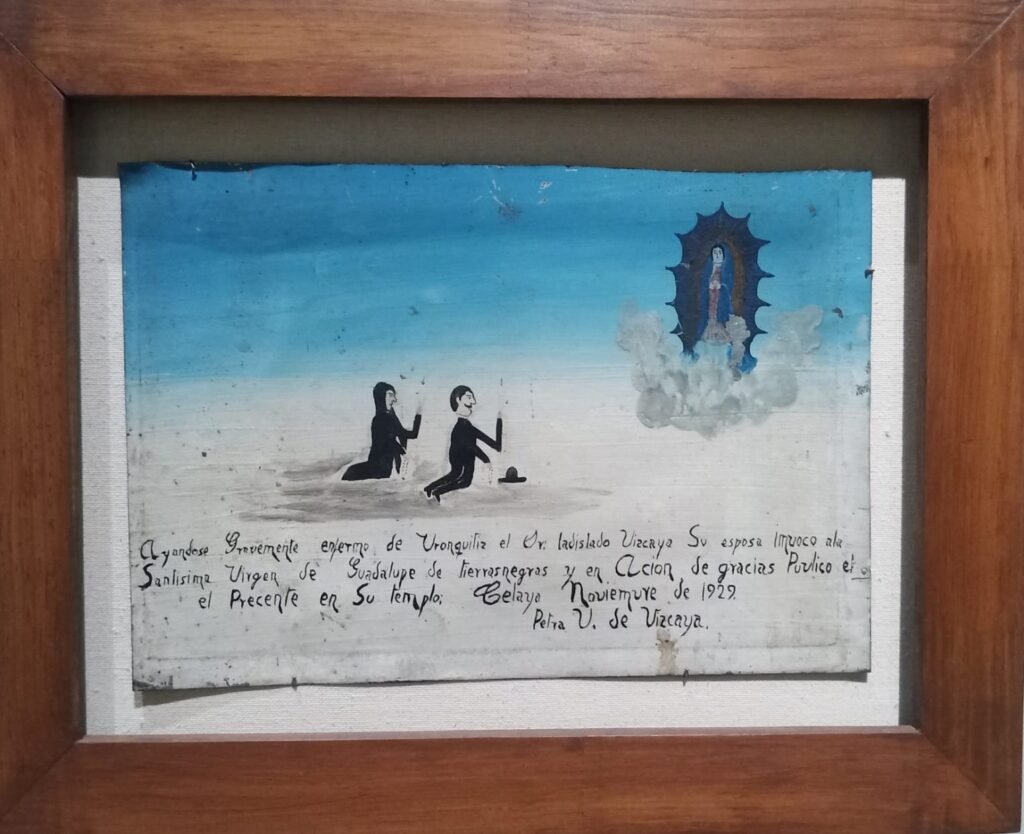 Ayandose Gravemente enfermo de Vronquitiz el Sr. ladislado Vizcaya Su esposa imvoco ala
Santisima Virgen de Guadalupe de tierrasnegras y en Acion de gracias Puvlico el
el Precente en Su templo; Celaya Noviemvre de 1929.
Petra V. de Vizcaya.